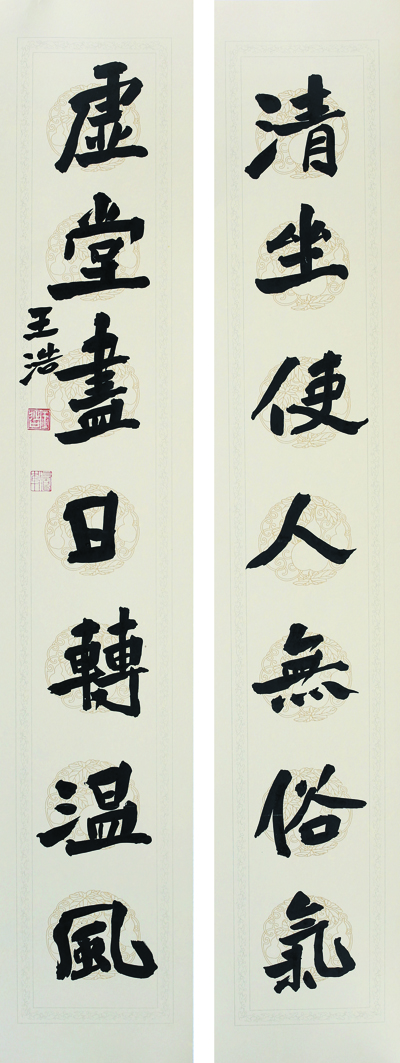 清坐使人無俗氣
虛堂盡日轉温風
王浩